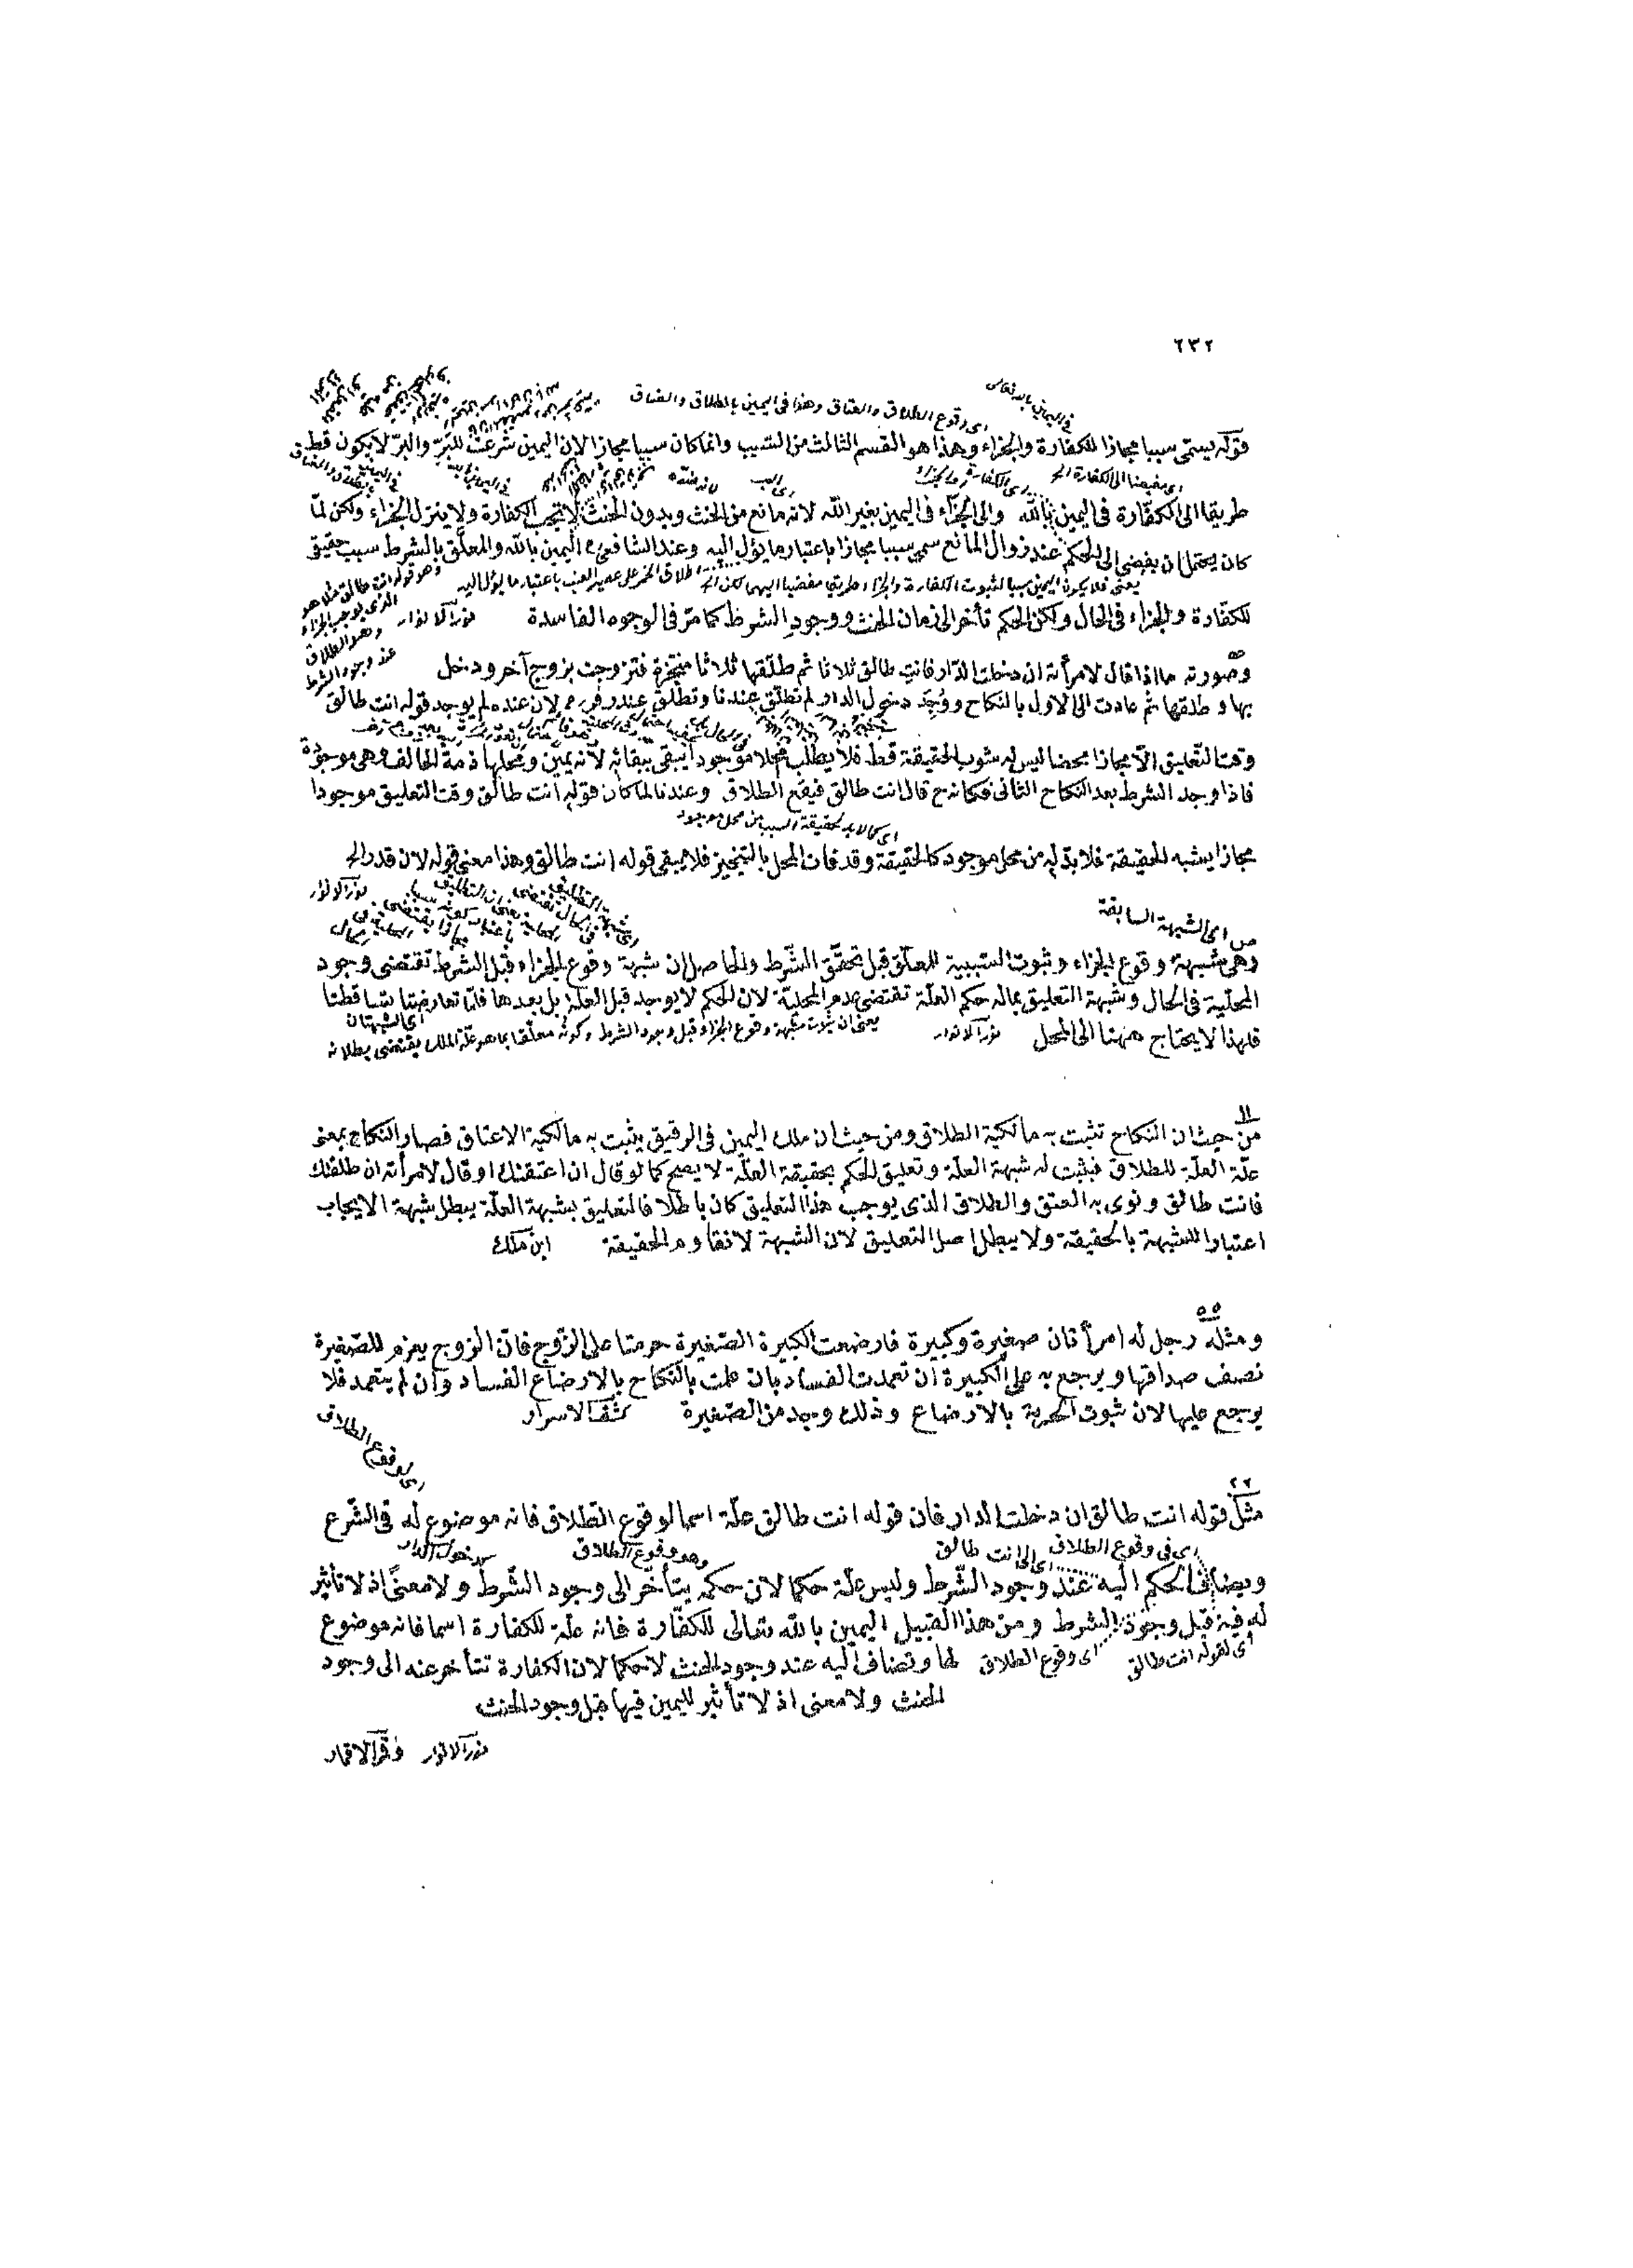 ٢٣٢
فى اليمين بالله تعالى
اى وقوع الطلاق والعتاق وهذا فى اليمين بالطلاق والعتاق
قوله يسمّى سببا مجازا للكفارة والجزاء وهذا هو القسم الثالث من السبب وانما كان سببا مجازا لان اليمين شرعت للبرّ والبرّ لا يكون قط
اى مفضيا الى الكفارة الخ
طريقا الى الكفّارة فى اليمين بالله والى الجزاء فى اليمين بغير الله لانه مانع من الحنث وبدون الحنث لا تجب الكفارة ولا ينزل الجزاء ولكن لمّا
كان يحتمل ان يفضى الى الحكم عند زوال المانع سمى سببا مجازا باعتبار ما يؤل اليه وعند الشافعى رح اليمين بالله والمعلّق بالشرط سبب حقيقى
يعنى فلا يكون اليمين سببا لثبوت الكفارة والجزاء وطريقا مفضيا اليهما لكن الخ
اطلاق الخمر على عصير العنب باعتبار ما يؤل اليه
وهو قوله انت طالق مثلا هو
الذى يوجب الجزاء
وهو الطلاق
عند وجود الشرط
للكفّارة والجزاء فى الحال ولكن الحكم تأخر الى زمان الحنث ووجود الشرط كما مرّ فى الوجوه الفاسدة نور الانوار
وصورته ما اذا قال لامرأته ان دخلت الدار فانت طالق ثلاثا ثم طلّقها ثلاثا منجّزة فتزوجت بزوج آخر ودخل
بها وطلقها ثم عادت الى الاول بالنكاح ووُجِد دخول الدار لم تطلّق عندنا وتطلّق عند زفر رح لان عنده لم يوجد قوله انت طالق
وقت التعليق الّا مجازا محضا ليس له شوب الحقيقة قط فلا يطلب محلا موجودا يبقى ببقائه لانّه يمين ومحلها ذمة الحالف وهى موجودة
فاذا وجد الشرط بعد النكاح الثانى فكانه ح قال انت طالق فيقع الطلاق وعندنا لما كان قوله انت طالق وقت التعليق موجودا
اى كالا بد لحقيقة السبب من محل موجود
مجازا يشبه الحقيقة فلا بدّ له من محل موجود كالحقيقة وقد فات المحل بالتنجيز فلا يبقى قوله انت طالق وهذا معنى قوله لان قدر الخ
نور الانوار
ص اى الشبهة السابقة
وهى شبهة وقوع الجزاء وثبوت السببية للمعلّق قبل تحقّق الشّرط والحاصل ان شبهة وقوع الجزاء قبل الشرط تقتضى وجود
المحلّية فى الحال وشبهة التعليق بماله حكم العلّة تقتضى عدم المحليّة لان الحكم لا يوجد قبل العلة بل بعدها فلمّا تعارضتا تساقطتا
اى الشبهتان
فلهذا لا يحتاج ههنا الى المحل نور الانوار
يعنى ان ثبوت شبهة وقوع الجزاء قبل وجود الشرط وكونه معلّقا بما هو علّة الملك يقتضى بطلانه
١١
من حيث ان النكاح تثبت به مالكيّة الطلاق ومن حيث ان ملك اليمين فى الرقيق يثبت به مالكيّة الاعتاق فصار النكاح بمعنى
علّة العلّة للطلاق فيثبت له شبهة العلّة وتعليق الحكم بحقيقة العلّة لا يصح كما لو قال ان اعتقتك او قال لامرأته ان طلقتك
فانت طالق ونوى به العتق والطلاق الذى يوجب هذا التعليق كان باطلا فالتعليق بشبهة العلّة يبطل شبهة الايجاب
اعتبارا للشبهة بالحقيقة ولا يبطل اصل التعليق لان الشبهة لا تقاوم الحقيقة ابن ملك
٥٥
ومثله رجل له امرأتان صغيرة وكبيرة فارضعت الكبيرة الصّغيرة حرمتا على الزّوج فانّ الزوج يغرم للصّغيرة
نصف صداقها ويرجع به على الكبيرة ان تعمدت الفساد بان علمت بالنّكاح بالارضاع الفساد وان لم يتعمد فلا
يرجع عليها لان ثبوت الحرمة بالارضاع وذلك وجد من الصّغيرة كشف الاسرار
اى لوقوع الطلاق
٢٢
مثل قوله انت طالق ان دخلت الدار فان قوله انت طالق علّة اسما لوقوع الطّلاق فانه موضوع له فى الشّرع
اى فى وقوع الطلاق
اى الى انت طالق
وهو وقوع الطلاق
كدخول الدار
ويضاف الحكم اليه عند وجود الشّرط وليس علّة حكما لان حكمه يتأخّر الى وجود الشّرط ولا معنًى اذ لا تأثير
له فيه قبل وجود الشرط ومن هذا القبيل اليمين بالله تعالى للكفّارة فانه علّة للكفارة اسما فانه موضوع
اى لقوله انت طالق
اى وقوع الطلاق
لها وتضاف اليه عند وجود الحنث لا حكما لان الكفارة تتأخر عنه الى وجود
الحنث ولا معنى اذ لا تأثير لليمين فيها قبل وجود الحنث
نور الانوار وقمر الاقمار